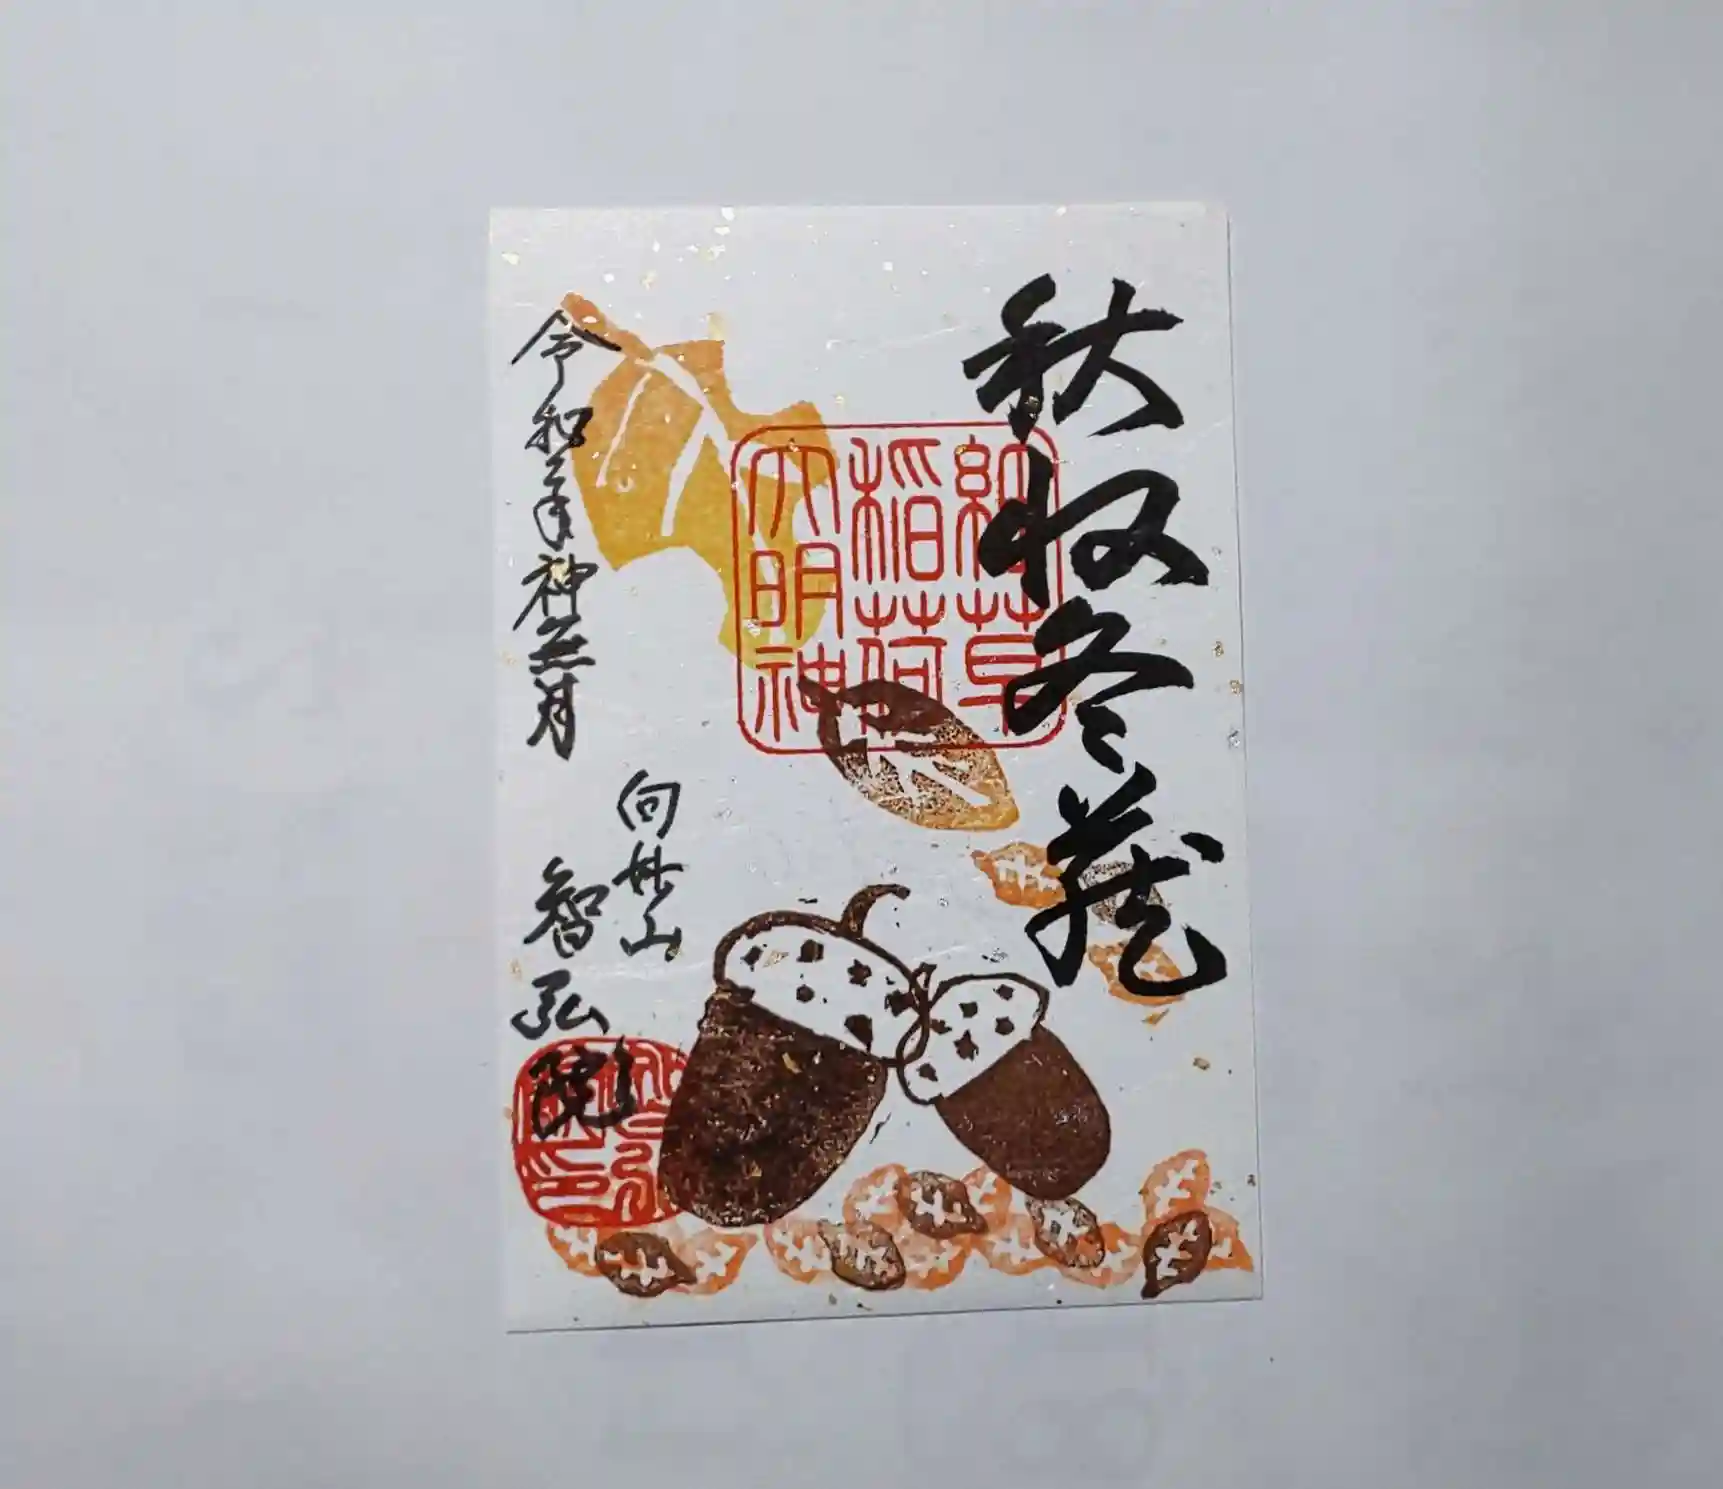 秋収冬蔵
草
稲荷
大明神
令和 年神無月
向妙山
智弘院
智弘
院印